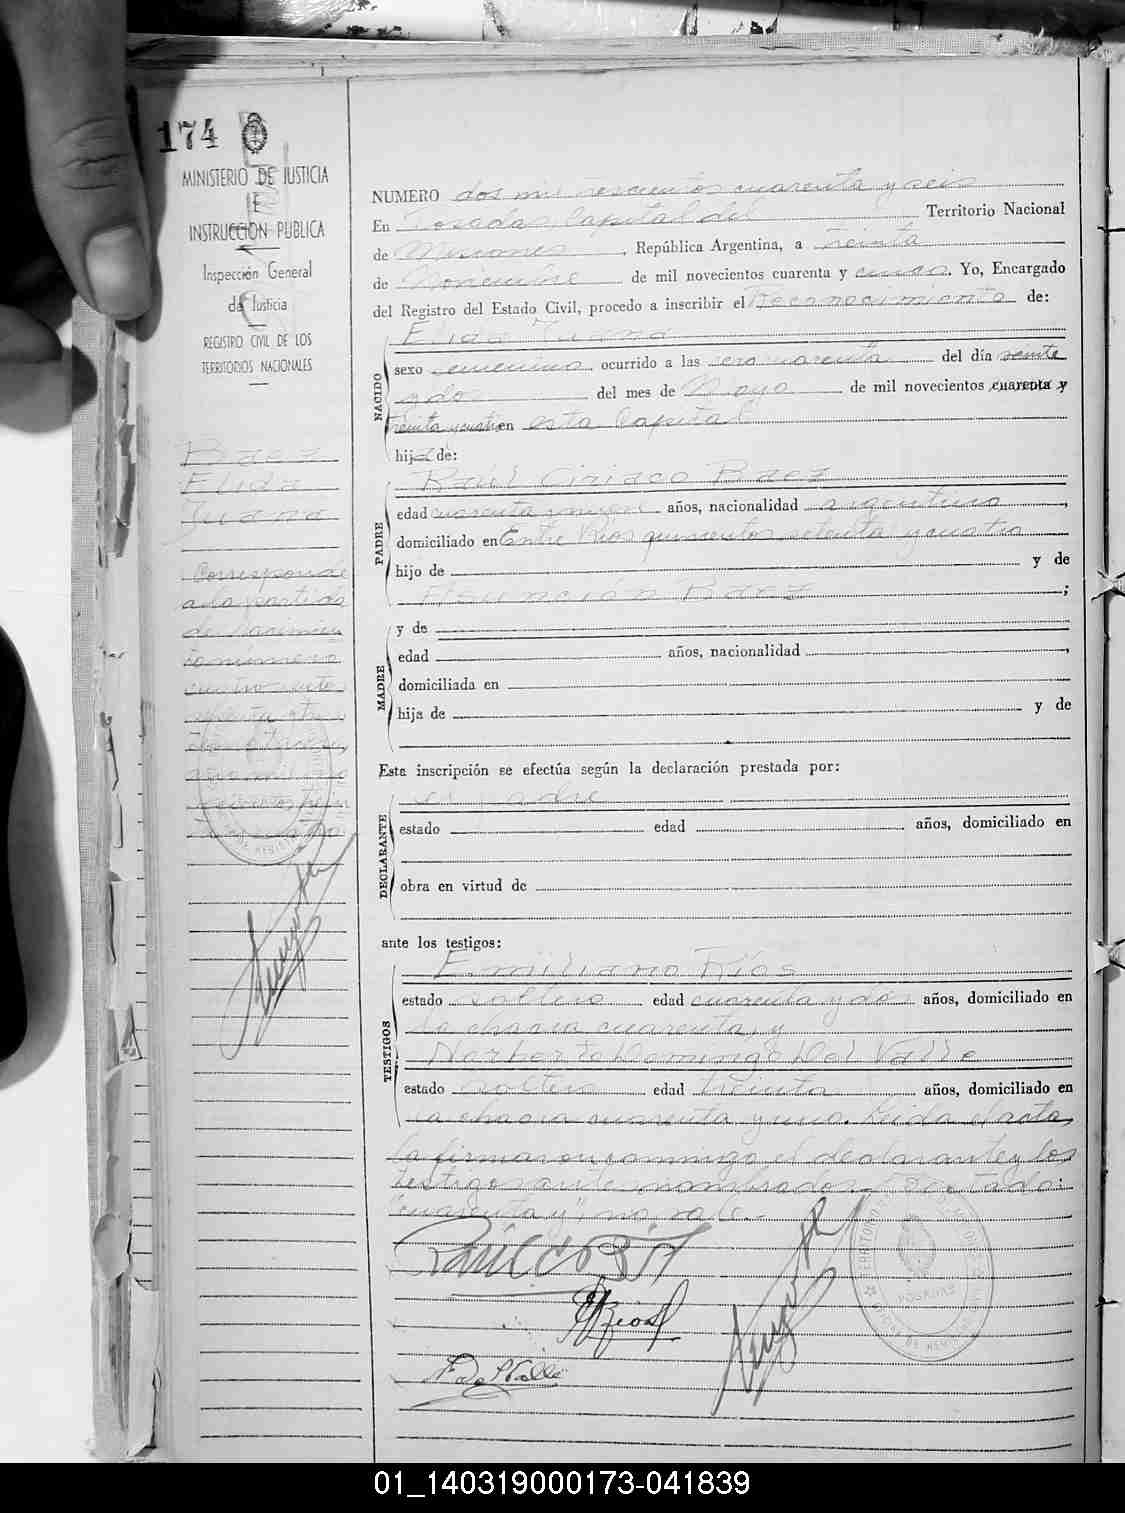 174
MINISTERIO DE JUSTICIA
E
INSTRUCCIÓN PUBLICA
Inspección General
de Justicia
REGISTRO CIVIL DE LOS
TERRITORIOS NACIONALES
Baez
Elida
Juana
Corresponde
a la partida
de nacimien
to número
NUMERO dos mil trescientos cuarenta y seis
En Posadas, Capital del Territorio Nacional
de Misiones, República Argentina, a treinta
de Noviembre de mil novecientos cuarenta y cinco. Yo, Encargado
del Registro del Estado Civil, procedo a inscribir el Reconocimiento de:
NACIDO
Elida Juana
sexo femenino ocurrido a las cero cuarenta del día veinte
y dos del mes de Mayo de mil novecientos cuarenta y
treinta y cuatro en esta Capital
hija de:
PADRE
Raúl Ciriaco Baez
edad cuarenta años, nacionalidad argentino,
domiciliado en Entre Rios quinientos setenta y cuatro
hijo de y de
Asunción Baez;
MADRE
y de
edad años, nacionalidad,
domiciliada en
hija de y de
Esta inscripción se efectúa según la declaración prestada por:
DECLARANTE
el padre
estado edad años, domiciliado en
obra en virtud de
ante los testigos:
TESTIGOS
Emiliano Ríos
estado soltero edad cuarenta y dos años, domiciliado en
la chacra cuarenta, y
Norberto Domingo Del Valle
estado soltero edad treinta años, domiciliado en
la chacra cuarenta y uno. Leida el acta,
la firmaron conmigo el declarante y los
testigos antes nombrados. Testado:
"cuarenta y", no vale.-
POSADAS
01_140319000173-041839